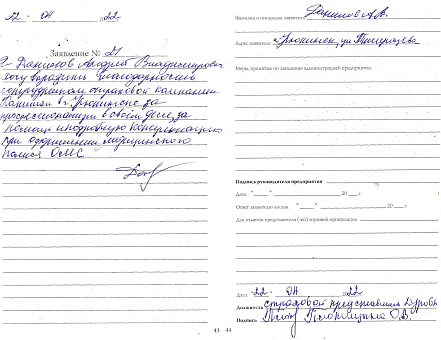 22 . 04 . 22
Заявление № 21
Я Данилов Андрей Владимирович
хочу выразить благодарность
сотрудникам страховой компании
Капитал в г. Урюпинске за
профессионализм в своем деле, за
помощь и подробную консультацию
при оформлении медицинского
полиса ОМС.
43
Фамилия и инициалы заявителя Данилов А.В.
Адрес заявителя г. Урюпинск, ул.
Меры, принятые по заявлению администрацией предприятия:
Подпись руководителя предприятия
Дата " " 20 г.
Ответ заявителю послан " " 20 г.
Для отметок представителя (-ей) торговой организации
Дата 22 . 04 . 2022
Должность страховой представитель
Подпись О.В.
44